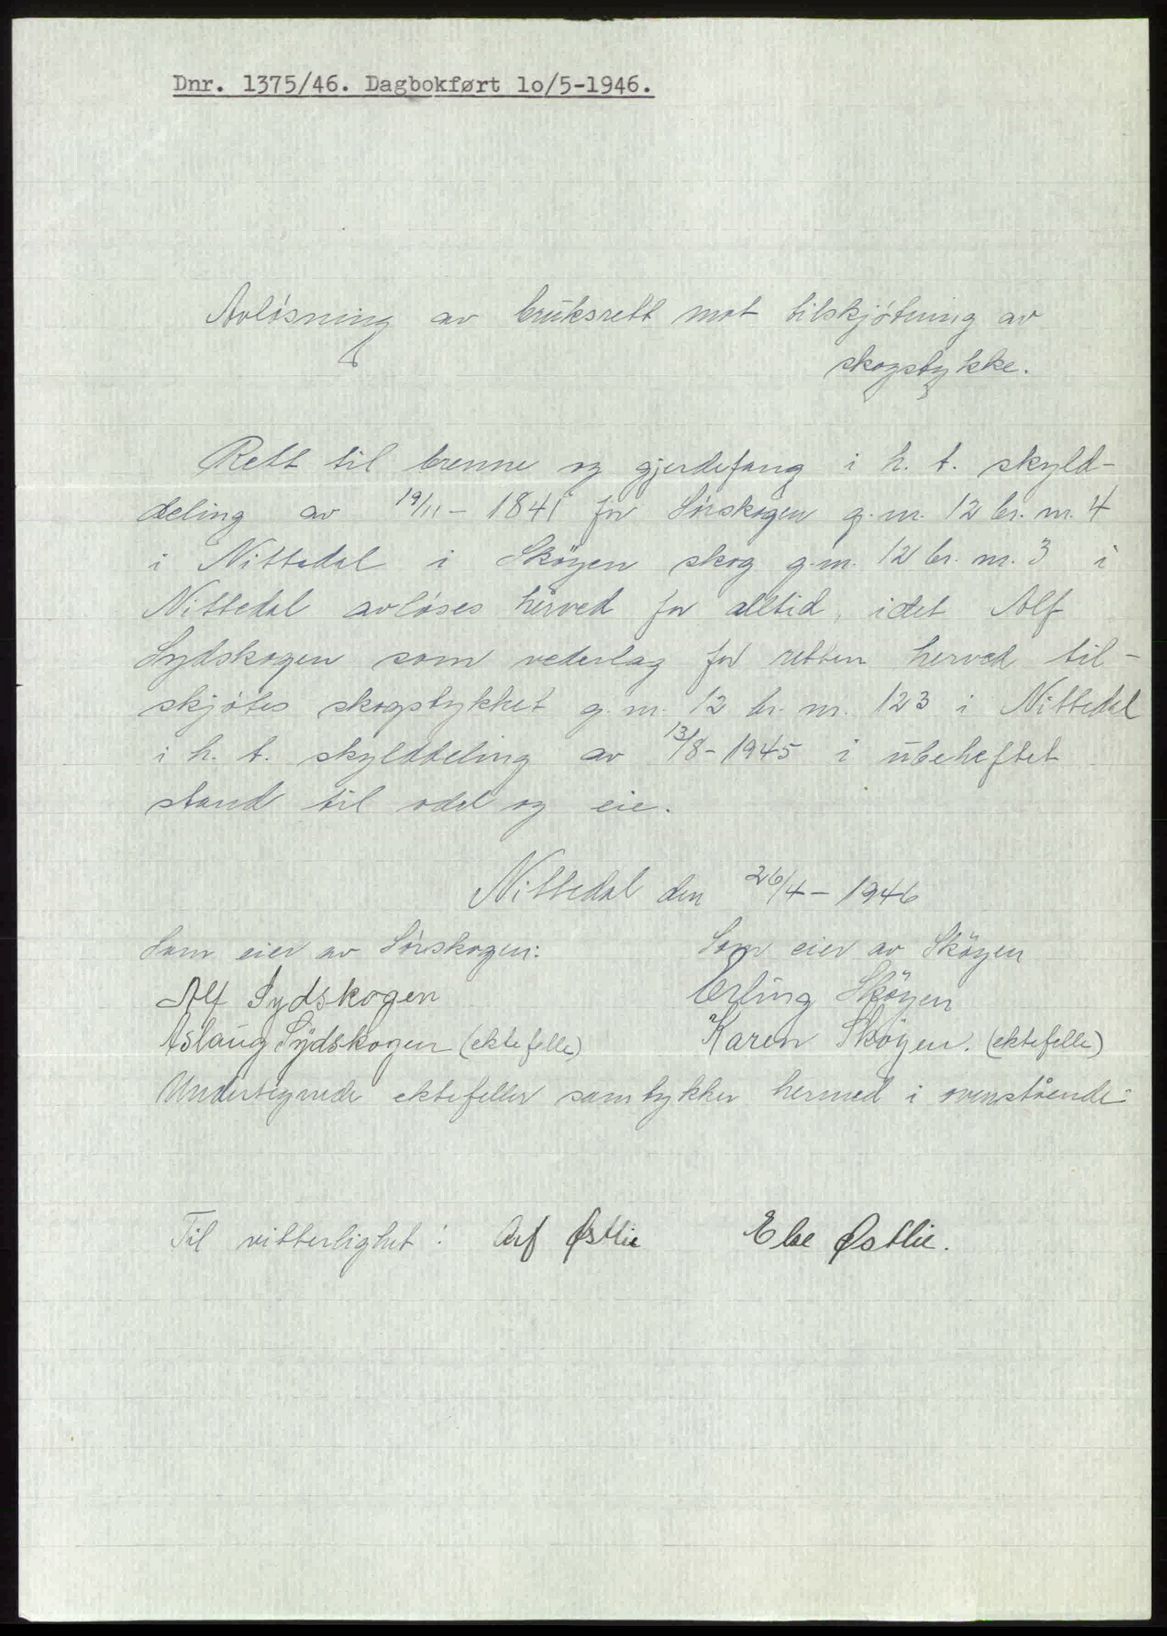 Dnr. 1375/46. Dagbokført 1o/5-1946.
Avlösning av bruksrett mot tilskjötning av
skogstykke.
Rett til brenne og gjerdefang i h. t. skyld-
deling av 19/11 - 1841 for Sörskogen g. nr. 12 br. nr. 4
i Nittedal i Sköyen skog g. nr. 12 br. nr. 3 i
Nittedal avlöses herved for alltid, idet Alf
Sydskogen som vederlag for retten herved til-
skjötes skogstykket g. nr. 12 br. nr. 123 i Nittedal
i h. t. skylddeling av 13/8 - 1945 i ubeheftet
stand til odel og eie.
Nittedal den 26/4 - 1946
Som eier av Sörskogen: Som eier av Sköyen
Alf Sydskogen Erling Sköyen
Aslaug Sydskogen (ektefelle) Karen Sköyen. (ektefelle)
Undertegnede ektefeller samtykker hermed i ovenstående:
Til vitterlighet: Østlie Else Østlie.